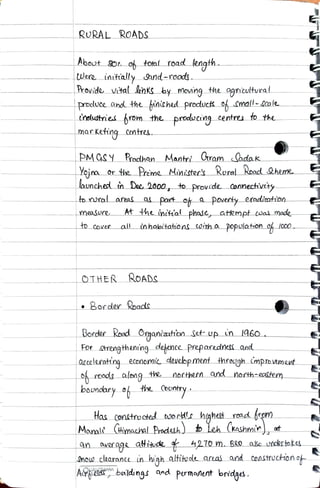 RURAL ROADS
About 80% of total road length.
Were initially sand-roads.
Provide vital links by moving the agricultural
produce and the finished products of small-scale
industries from the producing centres to the
marketing centres.
PMGSY Pradhan Mantri Gram Sadak
Yojna or the Prime Minister's Rural Road Scheme
launched in Dec 2000, to provide connectivity
to rural areas as part of a poverty eradication
measure. At the initial phase, attempt was made
to cover all inhabitations with a population of 1000.
OTHER ROADS
• Border Roads
Border Road Organization set-up in 1960.
For strengthening defence preparedness and
accelerating economic development through improvement
of roads along the northern and north-eastern
boundary of the country.
Has constructed world's highest road from
Manali (Himachal Pradesh) to Leh (Kashmir), at
an average altitude of 4270 m. BRO also undertakes
snow clearance in high altitude areas and construction of
Airfields, buildings and permanent bridges.